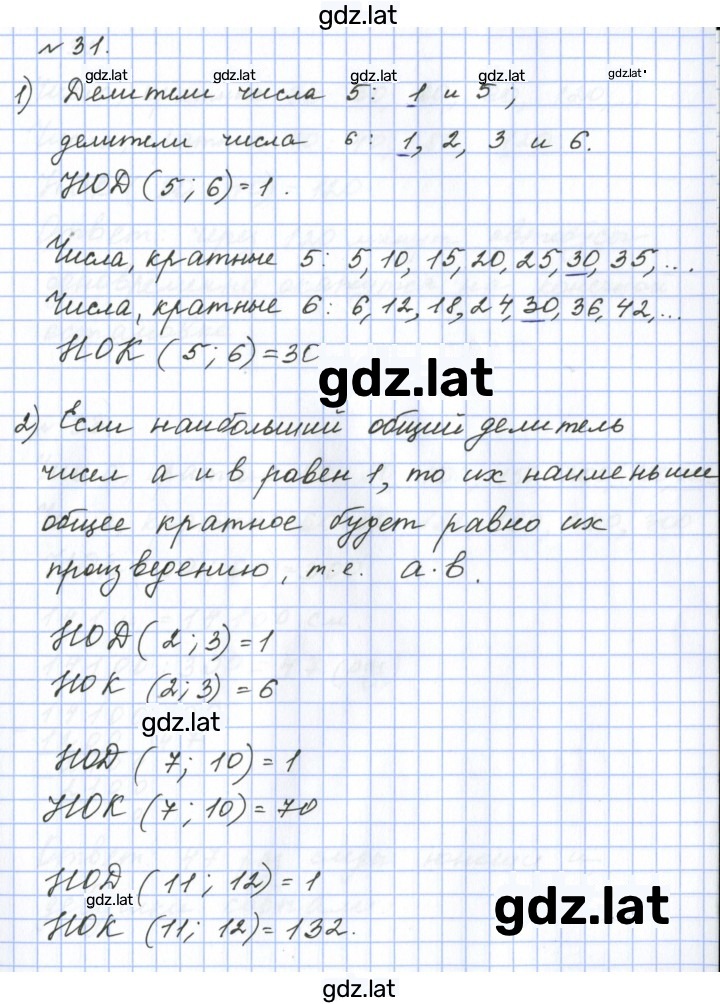 gdz.lat
№ 31.
gdz.lat gdz.lat gdz.lat gdz.lat gdz.lat
1) Делители числа 5: 1 и 5;
делители числа 6: 1, 2, 3 и 6.
НОД (5; 6) = 1.
Числа, кратные 5: 5, 10, 15, 20, 25, 30, 35, ...
Числа, кратные 6: 6, 12, 18, 24, 30, 36, 42, ...
НОК (5; 6) = 30
gdz.lat
2) Если наибольший общий делитель
чисел а и в равен 1, то их наименьше
общее кратное будет равно их
произведению, т.е. а·в.
НОД (2; 3) = 1
НОК (2; 3) = 6
gdz.lat
НОД (7; 10) = 1
НОК (7; 10) = 70
НОД (11; 12) = 1
gdz.lat gdz.lat
НОК (11; 12) = 132.
gdz.lat